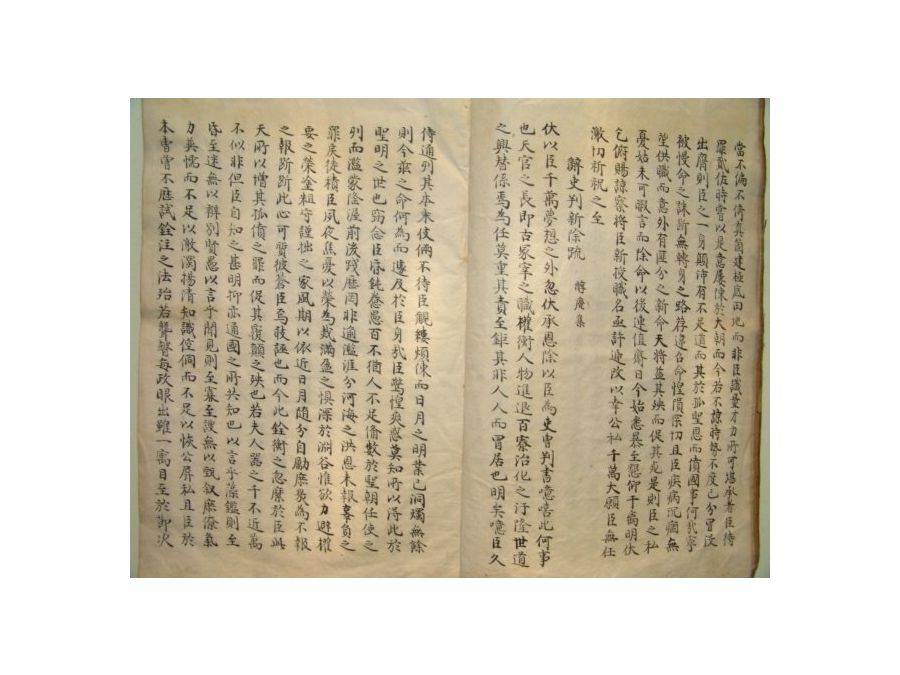 當不偏不倚眞箇建極底田地而非臣識量才力所可堪承者臣待
罪貳佐時嘗以是意屢陳於大朝而今若不諒時勢不度己分冒沒
出膺則臣之一身顚沛有不足道而其於孤聖恩而僨國事何哉寧
被慢命之誅斷無轉身之路荐違召命惶隕罪切且臣疾病沉痼無
望供職而意外有匪分之新命天將益其殃而促其死是則臣之私
憂姑未可暇言而除命以後連値齋日今始悉暴至懇仰干崇明伏
乞俯賜諒察將臣新授職名亟許遞改以幸公私千萬大願臣無任
激切祈祝之至
辭吏判新除疏
伏以臣千萬夢想之外忽伏承恩除以臣爲吏曹判書噫嘻此何事
也天官之長卽古冢宰之職權衡人物進退百寮治化之汙隆世道
之興替係焉爲任莫重其責至鉅其非人人而冒居也明矣噫臣久
侍邇列其本來伎倆不待臣覼縷煩陳而日月之明業已洞燭無餘
則今玆之命何爲而遽及於臣身哉臣驚惶爽惑莫知所以得此於
聖明之世也窃念臣昏鈍惷愚百不猶人不足備數於聖朝任使之
列而濫蒙隆渥前後踐歷罔非逾濫涯分河海之洪恩未報
罪戾徒積臣夙夜焦憂以榮爲烖滿盈之惧深於淵谷惟欲力避權
要之榮塗粗守謹拙之家風期以依近日月隨分自勵庶幾爲不報
之報斷斷此心可質彼蒼臣焉敢誣也而今此銓衡之忽縻於臣
天所以增其孤負之罪而促其覆顚之殃也若夫人器之千不近萬
不似非但臣自知之甚明抑亦通國之所共知也以言乎藻鑑則至
昏至迷無以辨別賢愚以言乎聞見則至寡至謏無以甄叙
力異懦而不足以激濁揚淸知識倥侗而不足以恢公屛私且臣於
本曹曾不歷試銓注之法殆若聾瞽每政眼出雖一寓目至於